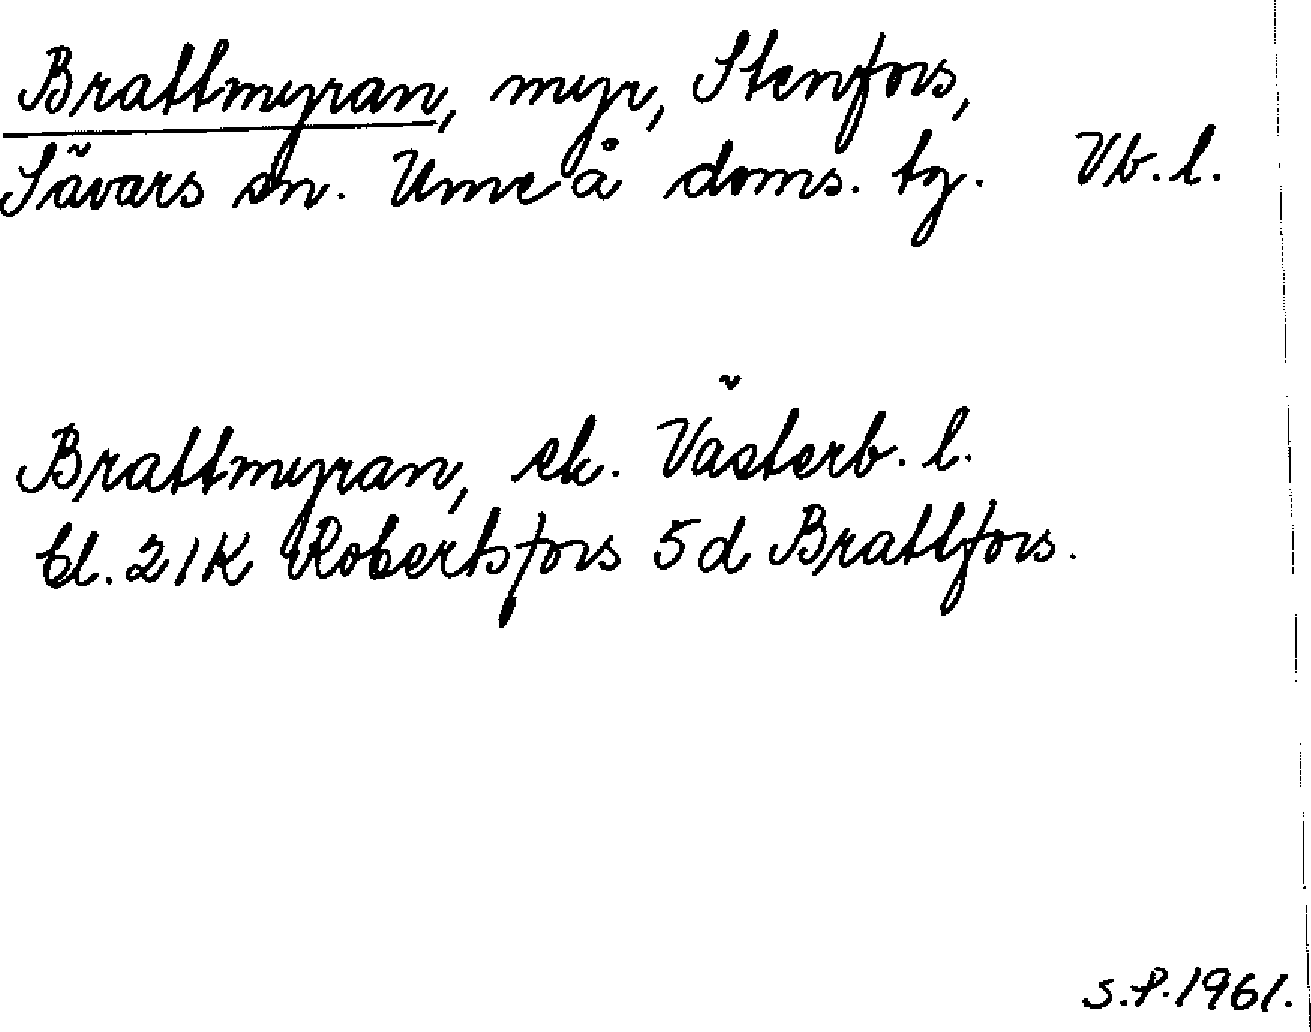 Brattmyran, myr, Stenfors,
Sävars sn. Umeå doms. tg. Vb. l.
Brattmyran, ek. Västerb. l.
bl. 21K Robertsfors 5d Brattfors.
S.P. 1961.